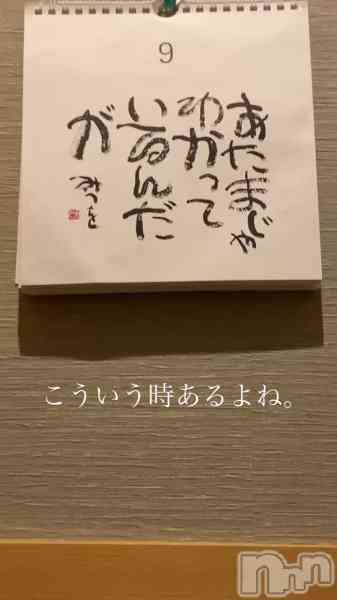 9
あたまじゃ
わかって
いるんだ
が
みつを
こういう時あるよね。
nnn